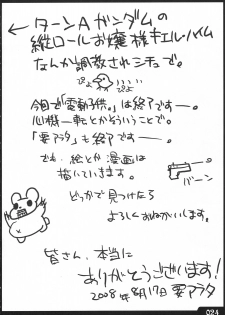 ←ターンAガンダムの
縦ロールお嬢様キエル・ハイム
なんか調教されシチュで。
ぴよ
ぴよ
今回で「電動子供。」は終了です―。
心機一転とかそういうことで。
「要アラタ」も終了です―。
でも、絵とか漫画は
描いていきます。
どっかで見つけたら
よろしくおねがいします。
バーン
皆さん、本当に
ありがとうございます!
2008年8月17日 要アラタ
024